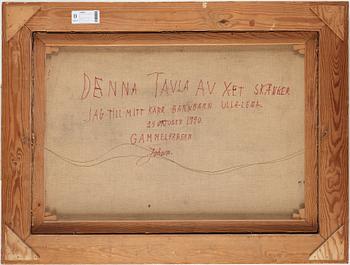 DENNA TAVLA AV XET SKÄNKER
JAG TILL MITT KÄRA BARNBARN ULLA-LENA
25 OKTOBER 1990.
GAMMELFARFAR
Johan.